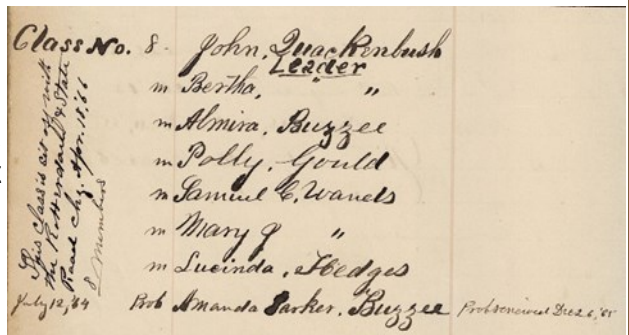 Class No. 8. John, Quackenbush
Leader
m Bertha, " "
m Almira, Buzzee
m Polly, Gould
m Samuel C. Wands
m Mary J "
m Lucinda, Hedges
July 12, '64 Prob Amanda Parker, Buzzee Prob renewed Dec 26, '65
This Class is set off with
the Rotterdam & State
Road Chg. Apr. 18, '66
8 members